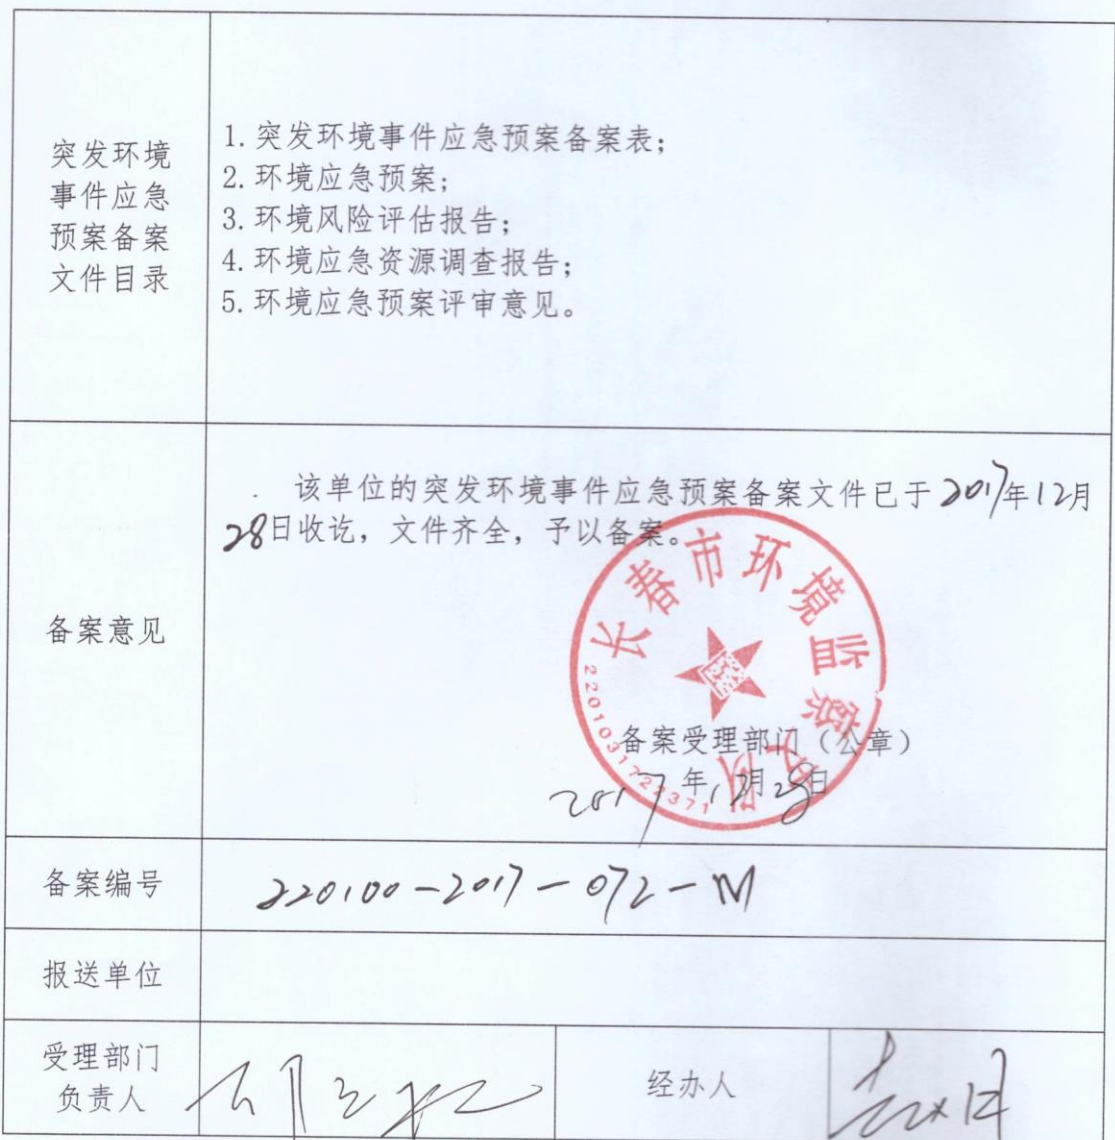 突发环境
事件应急
预案备案
文件目录
1.突发环境事件应急预案备案表；
2.环境应急预案；
3.环境风险评估报告；
4.环境应急资源调查报告；
5.环境应急预案评审意见。
备案意见
该单位的突发环境事件应急预案备案文件已于2017年12月
28日收讫，文件齐全，予以备案。
长春市环境监察支队
2201031722371
备案受理部门（公章）
2017年12月28日
备案编号
220100-2017-072-M
报送单位
受理部门
负责人
经办人